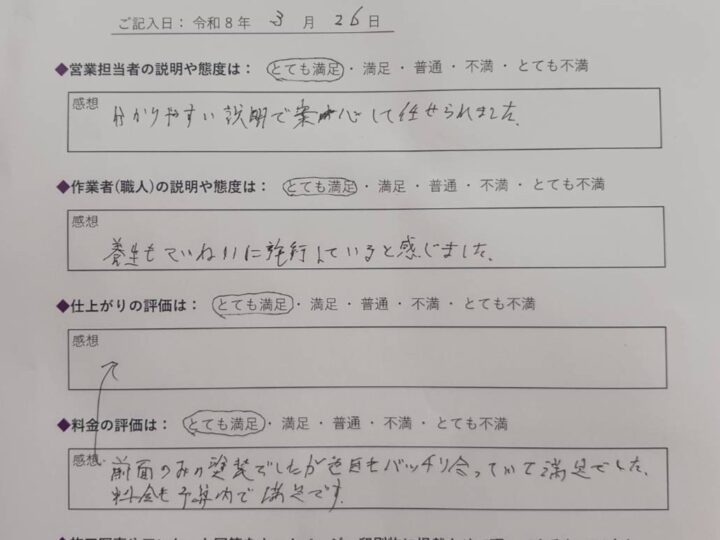 ご記入日：令和８年 3 月 26 日
◆営業担当者の説明や態度は： とても満足 ・ 満足 ・ 普通 ・ 不満 ・ とても不満
感想
分かりやすい説明で安心して任せられました。
◆作業者(職人)の説明や態度は： とても満足 ・ 満足 ・ 普通 ・ 不満 ・ とても不満
感想
養生もていねいに施行していると感じました。
◆仕上がりの評価は： とても満足 ・ 満足 ・ 普通 ・ 不満 ・ とても不満
感想
◆料金の評価は： とても満足 ・ 満足 ・ 普通 ・ 不満 ・ とても不満
感想
前面のみの塗装でしたが色目もバッチリ合っていて満足でした。
料金も予算内で満足です。